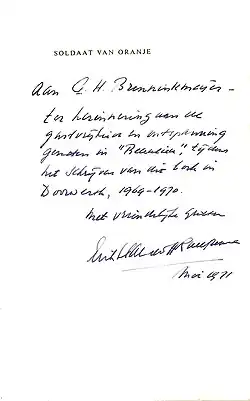 SOLDAAT VAN ORANJE
Aan G. H. Brenninkmeijer –
ter herinnering aan de
gastvrijheid en ontspanning
genoten in "", tijdens
het schrijven van dit boek in
Doorwerth, 1969-1970.
Met vriendelijke groeten
Erik Hazelhoff Roelfzema
Mei 1971